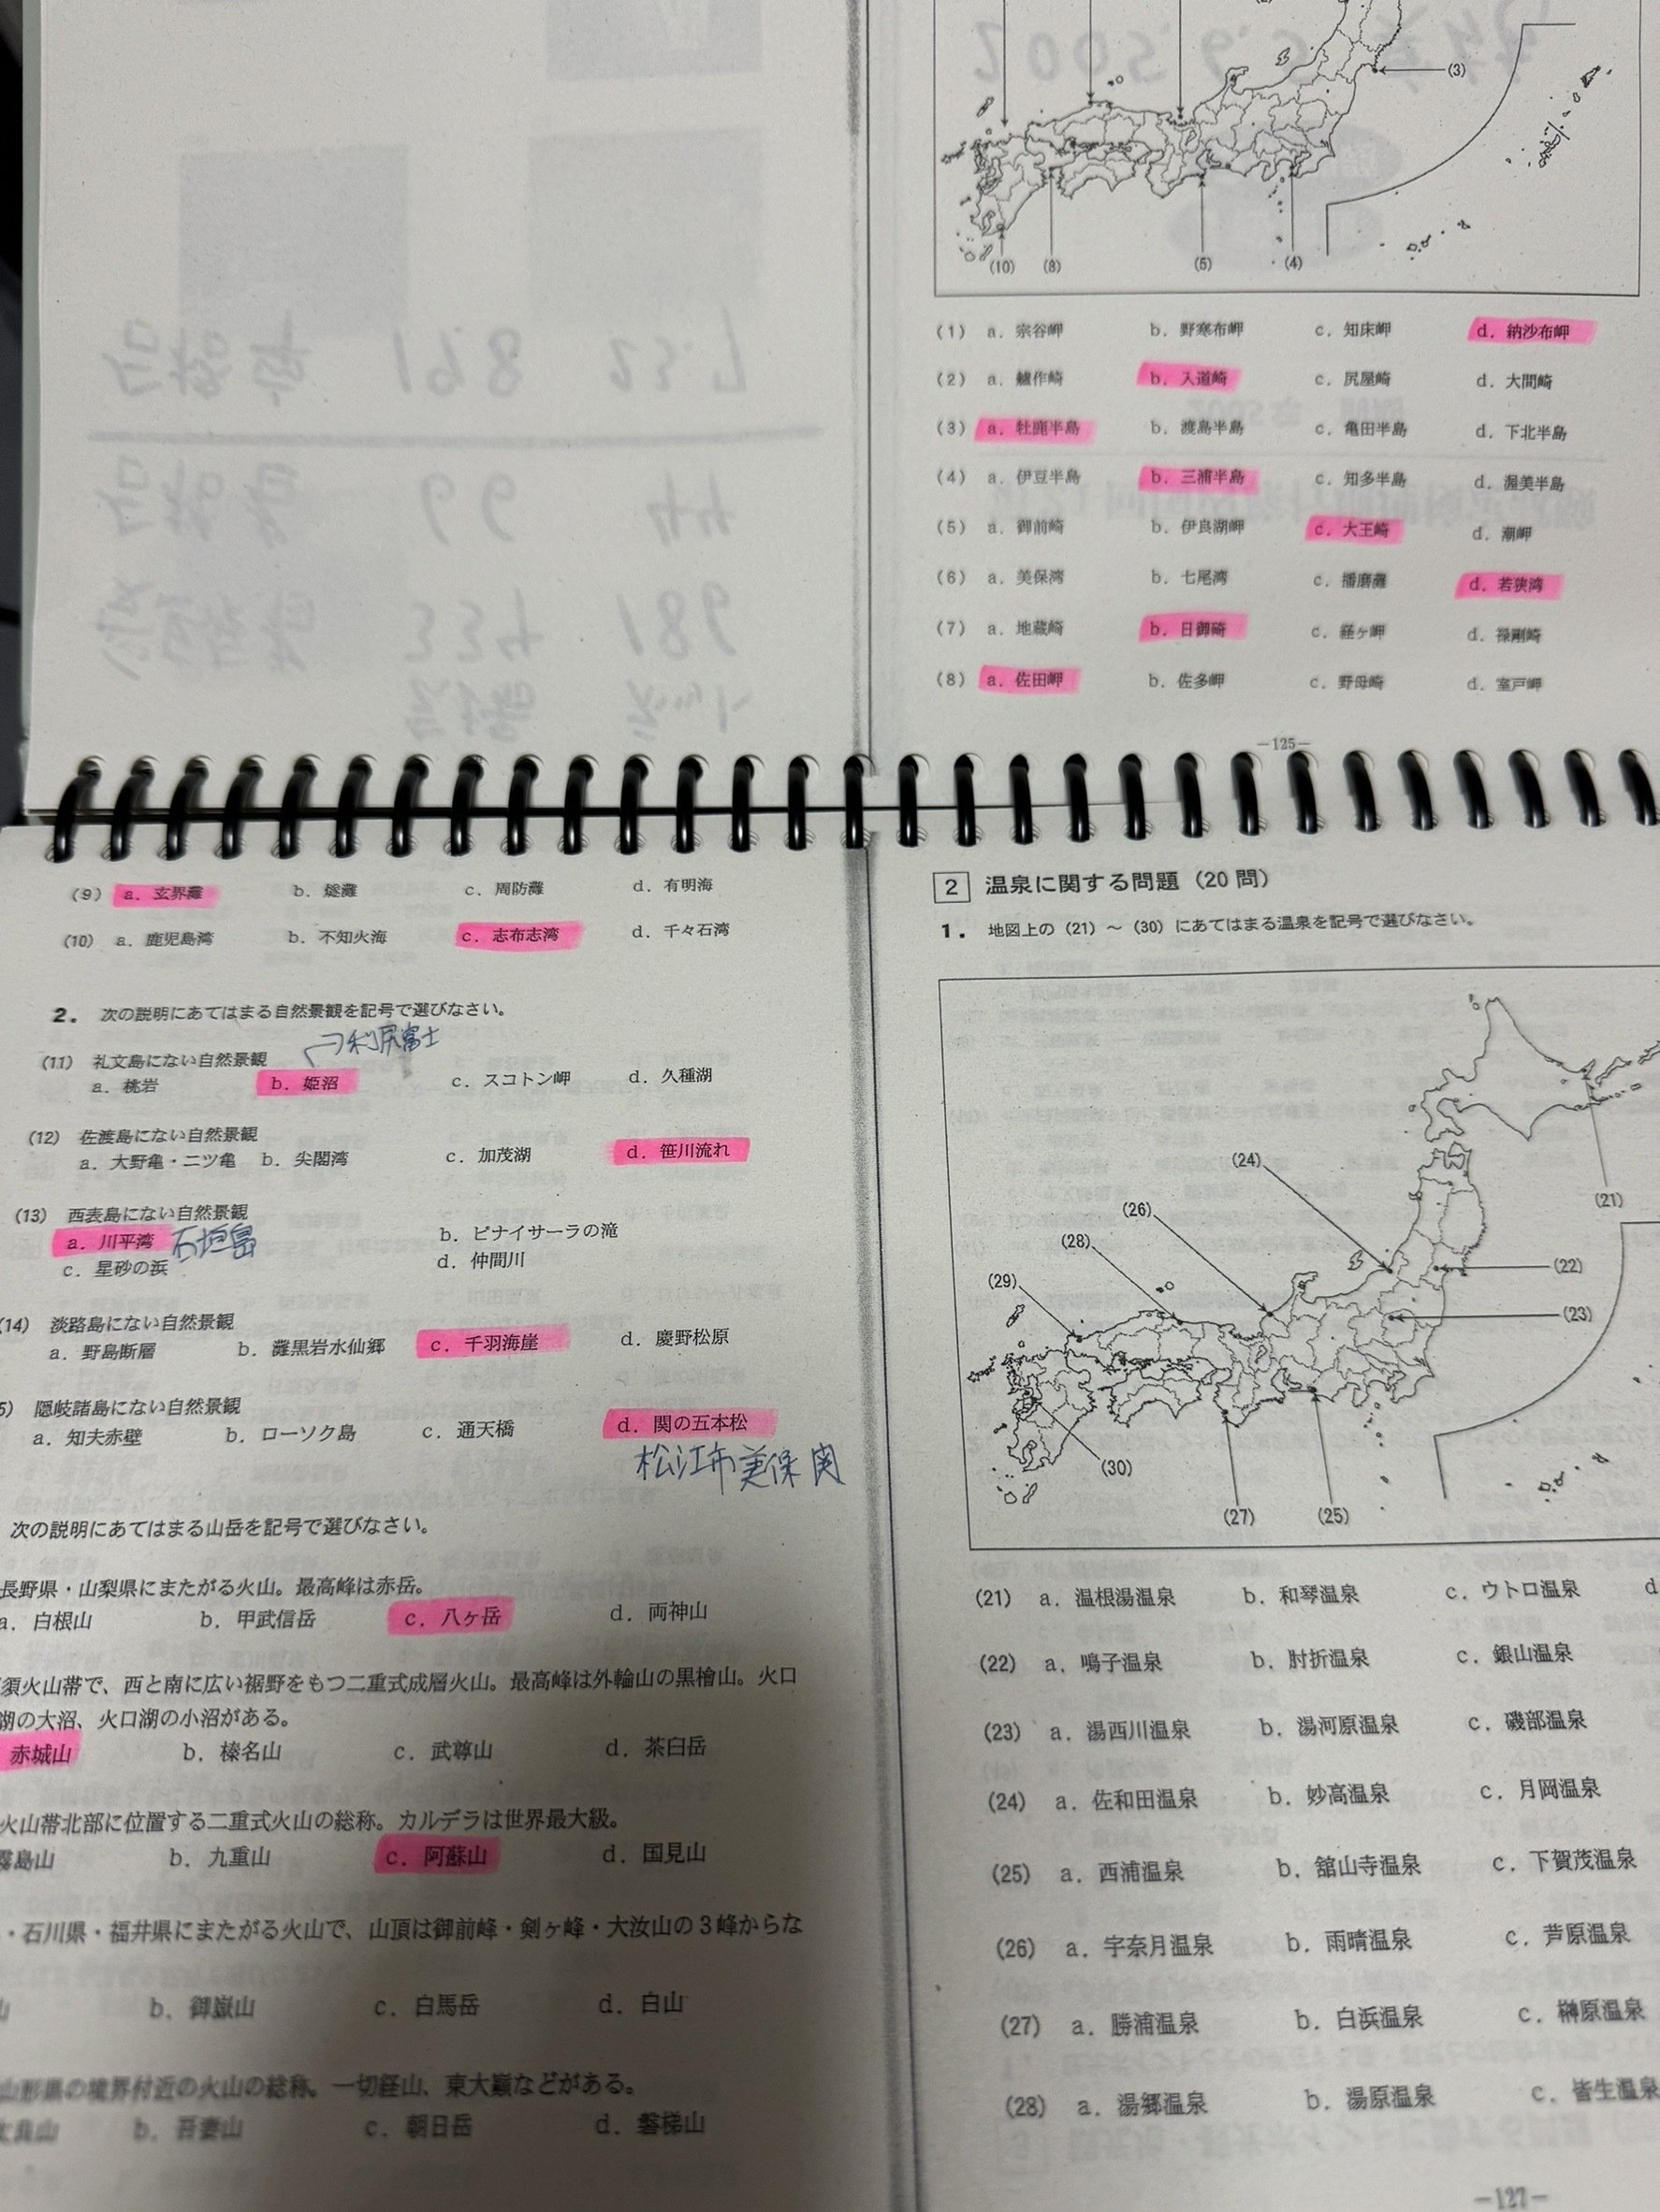 (3)
(10)
(8)
(5)
(4)
(1) a. 宗谷岬 b. 野寒布岬 c. 知床岬 d. 納沙布岬
(2) a. 艫作崎 b. 入道崎 c. 尻屋崎 d. 大間崎
(3) a. 牡鹿半島 b. 渡島半島 c. 亀田半島 d. 下北半島
(4) a. 伊豆半島 b. 三浦半島 c. 知多半島 d. 渥美半島
(5) a. 御前崎 b. 伊良湖岬 c. 大王崎 d. 潮岬
(6) a. 美保湾 b. 七尾湾 c. 播磨灘 d. 若狭湾
(7) a. 地蔵崎 b. 日御碕 c. 経ヶ岬 d. 禄剛崎
(8) a. 佐田岬 b. 佐多岬 c. 野母崎 d. 室戸岬
—125—
(9) a. 玄界灘 b. 燧灘 c. 周防灘 d. 有明海
(10) a. 鹿児島湾 b. 不知火海 c. 志布志湾 d. 千々石湾
2. 次の説明にあてはまる自然景観を記号で選びなさい。
利尻富士
(11) 礼文島にない自然景観
a. 桃岩 b. 姫沼 c. スコトン岬 d. 久種湖
(12) 佐渡島にない自然景観
a. 大野亀・二ツ亀 b. 尖閣湾 c. 加茂湖 d. 笹川流れ
(13) 西表島にない自然景観
a. 川平湾 石垣島 b. ピナイサーラの滝
c. 星砂の浜 d. 仲間川
(14) 淡路島にない自然景観
a. 野島断層 b. 灘黒岩水仙郷 c. 千羽海崖 d. 慶野松原
5) 隠岐諸島にない自然景観
a. 知夫赤壁 b. ローソク島 c. 通天橋 d. 関の五本松
松江市美保関
次の説明にあてはまる山岳を記号で選びなさい。
長野県・山梨県にまたがる火山。最高峰は赤岳。
a. 白根山 b. 甲武信岳 c. 八ヶ岳 d. 両神山
須火山帯で、西と南に広い裾野をもつ二重式成層火山。最高峰は外輪山の黒檜山。火口
湖の大沼、火口湖の小沼がある。
赤城山 b. 榛名山 c. 武尊山 d. 茶臼岳
火山帯北部に位置する二重式火山の総称。カルデラは世界最大級。
霧島山 b. 九重山 c. 阿蘇山 d. 国見山
・石川県・福井県にまたがる火山で、山頂は御前峰・剣ヶ峰・大汝山の3峰からな
山 b. 御嶽山 c. 白馬岳 d. 白山
山形県の境界付近の火山の総称。一切経山、東大巓などがある。
b. 吾妻山 c. 朝日岳 d. 磐梯山
2 温泉に関する問題（20問）
1. 地図上の（21）～（30）にあてはまる温泉を記号で選びなさい。
(24)
(21)
(26)
(28)
(22)
(29)
(23)
(30)
(27)
(25)
(21) a. 温根湯温泉 b. 和琴温泉 c. ウトロ温泉 d
(22) a. 鳴子温泉 b. 肘折温泉 c. 銀山温泉
(23) a. 湯西川温泉 b. 湯河原温泉 c. 磯部温泉
(24) a. 佐和田温泉 b. 妙高温泉 c. 月岡温泉
(25) a. 西浦温泉 b. 舘山寺温泉 c. 下賀茂温泉
(26) a. 宇奈月温泉 b. 雨晴温泉 c. 芦原温泉
(27) a. 勝浦温泉 b. 白浜温泉 c. 榊原温泉
(28) a. 湯郷温泉 b. 湯原温泉 c. 皆生温泉
—127—